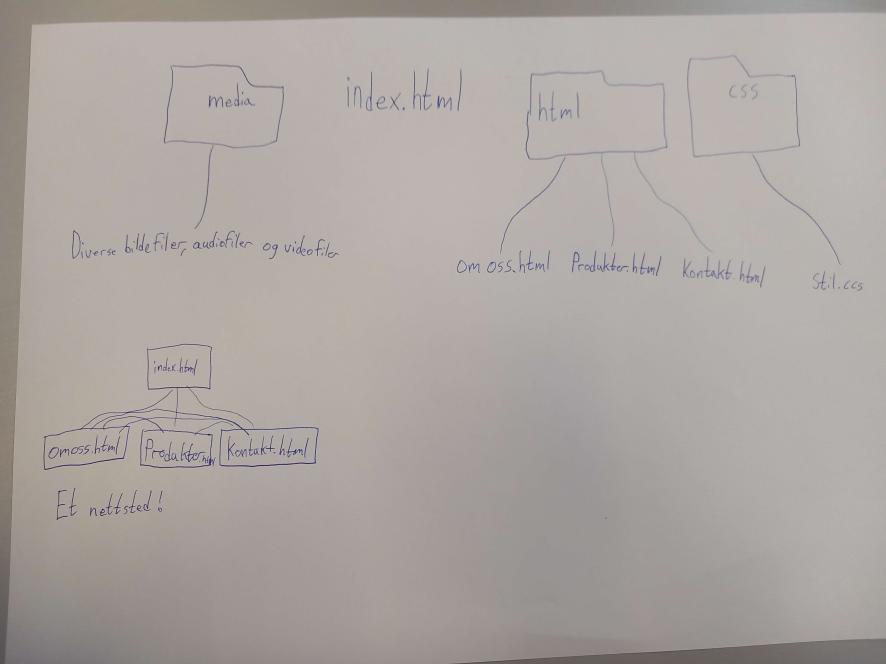 media
index.html
html
css
Diverse bildefiler, audiofiler og videofiler
om oss.html
Produkter.html
Kontakt.html
Stil.ccs
index.html
omoss.html
Produkter.html
Kontakt.html
Et nettsted!